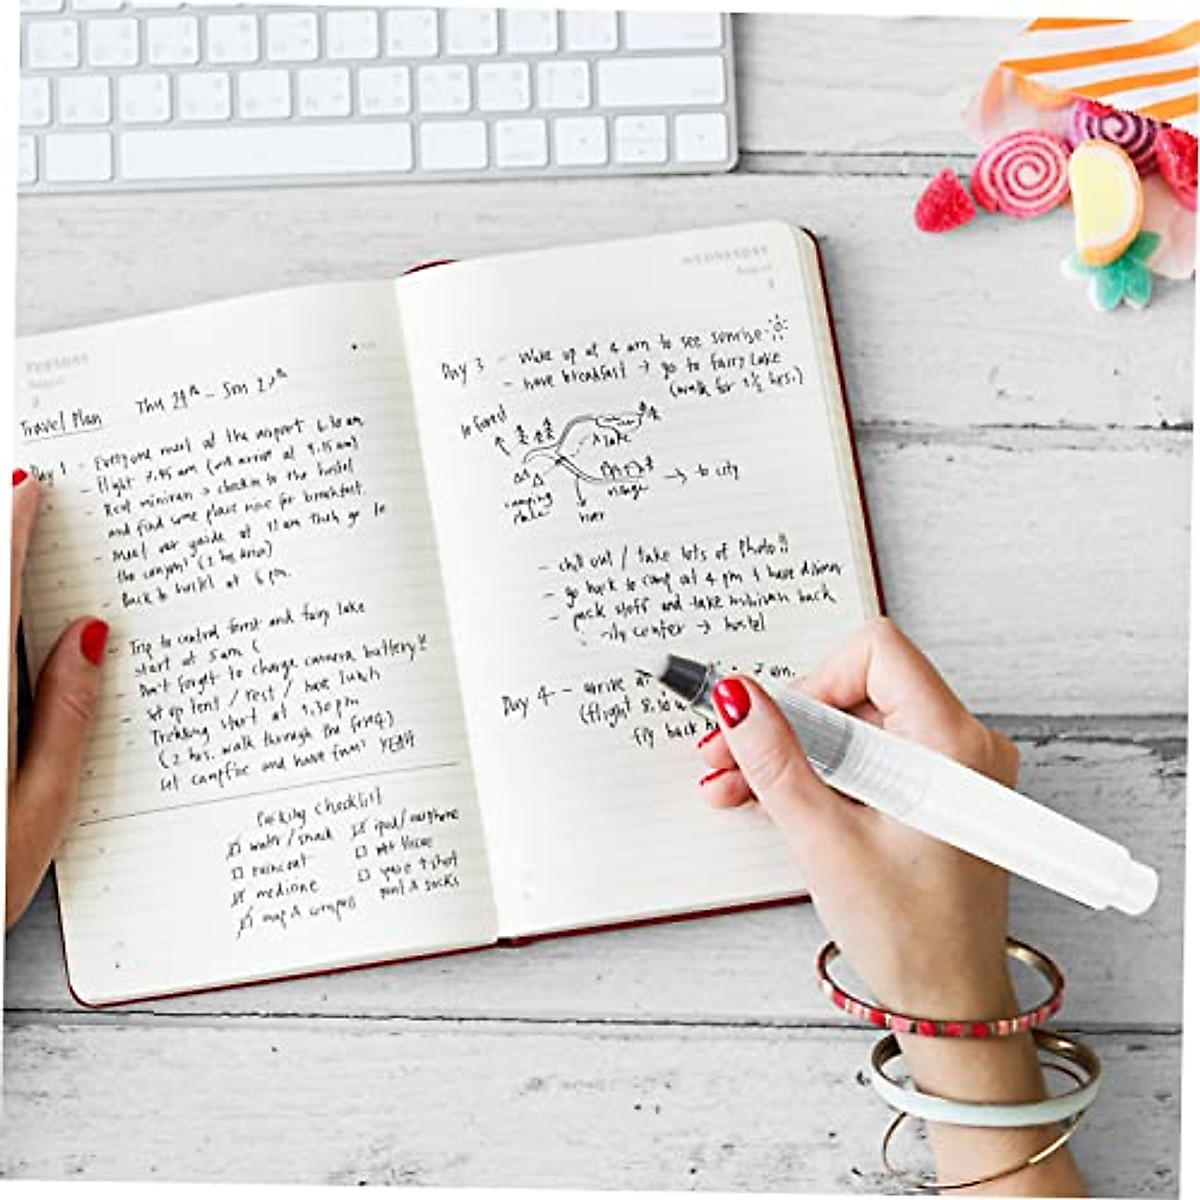 TUESDAY
August
Travel Plan
Day 1 - Everyone meet at the airport 6.10 am
- flight 7.45 am (will arrive at 9.15 am)
- Rent minivan → checkin to the hostel
and find some place nice for breakfast.
- Meet our guide at 11 am then go to
the canyon! (2 hrs drive)
- Back to hostel at 6 pm.
- Trip to central forest and fairy lake
start at 5 am (
- Don't forget to charge camera battery!!
- set up tent / rest / have lunch
- Trekking start at 1.30 pm
(2 hrs. walk through the forest)
- Set campfire and have fun! YEAH
Packing Checklist
water / snack
raincoat
medicine
map & compass
ipod / earphone
wet tissue
pant & socks
WEDNESDAY
August
Day 3 - Wake up at 4 am to see sunrise
- have breakfast → go to fairy lake
(walk for 1½ hrs.)
to forest
lake
camping
village
→ to city
river
- chill out / take lots of photo!!
- go back to camp at 4 pm & have dinner
- pack stuff and take minivan back
city center → hostel
Day 4 - arrive at 7 am.
(flight 8.10
fly back